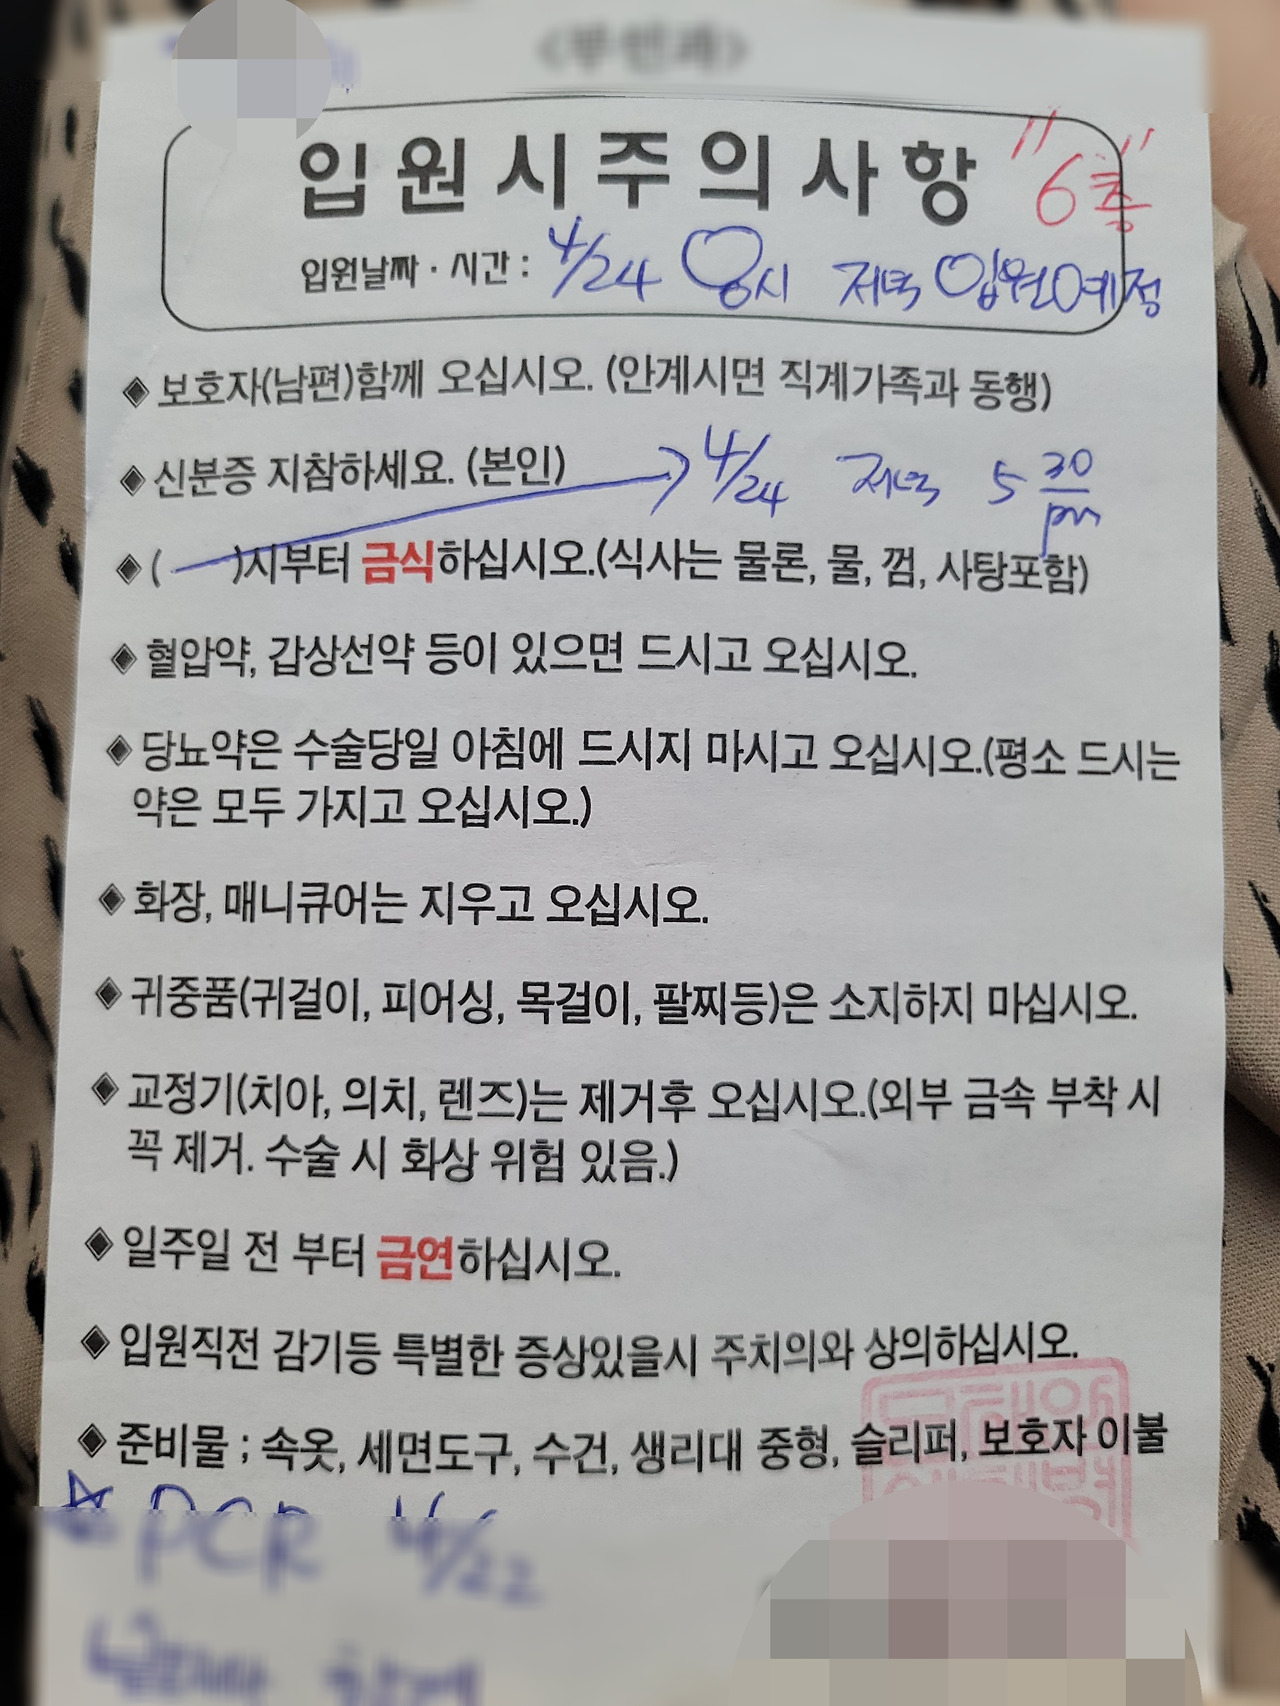 <부인과>
입원시주의사항
"6층"
입원날짜 · 시간 : 4/24 저녁 입원예정
◈ 보호자(남편)함께 오십시오. (안계시면 직계가족과 동행)
◈ 신분증 지참하세요. (본인)
→ 4/24 저녁 5 30 pm
◈ ( )시부터 금식하십시오.(식사는 물론, 물, 껌, 사탕포함)
◈ 혈압약, 갑상선약 등이 있으면 드시고 오십시오.
◈ 당뇨약은 수술당일 아침에 드시지 마시고 오십시오.(평소 드시는
약은 모두 가지고 오십시오.)
◈ 화장, 매니큐어는 지우고 오십시오.
◈ 귀중품(귀걸이, 피어싱, 목걸이, 팔찌등)은 소지하지 마십시오.
◈ 교정기(치아, 의치, 렌즈)는 제거후 오십시오.(외부 금속 부착 시
꼭 제거. 수술 시 화상 위험 있음.)
◈ 일주일 전 부터 금연하십시오.
◈ 입원직전 감기등 특별한 증상있을시 주치의와 상의하십시오.
◈ 준비물 ; 속옷, 세면도구, 수건, 생리대 중형, 슬리퍼, 보호자 이불
☆ PCR 4/22